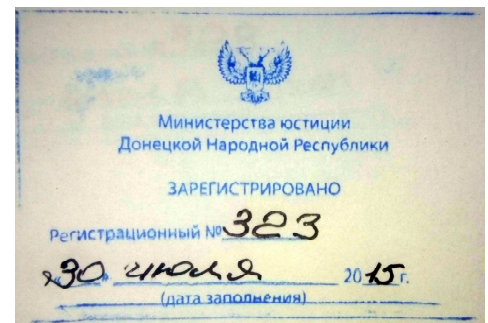 Министерства юстиции
Донецкой Народной Республики
ЗАРЕГИСТРИРОВАНО
Регистрационный № 323
«30» июля 2015 г.
(дата заполнения)